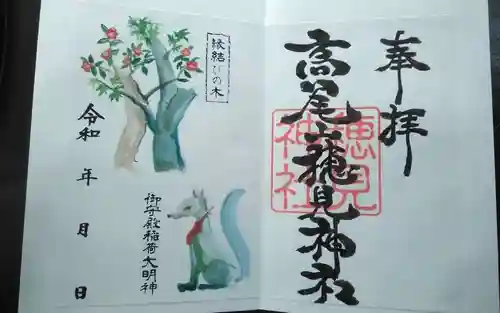 奉拝
高尾山穂見神社
穂見
神社
縁結びの木
御守殿稲荷大明神
令和 年 月 日